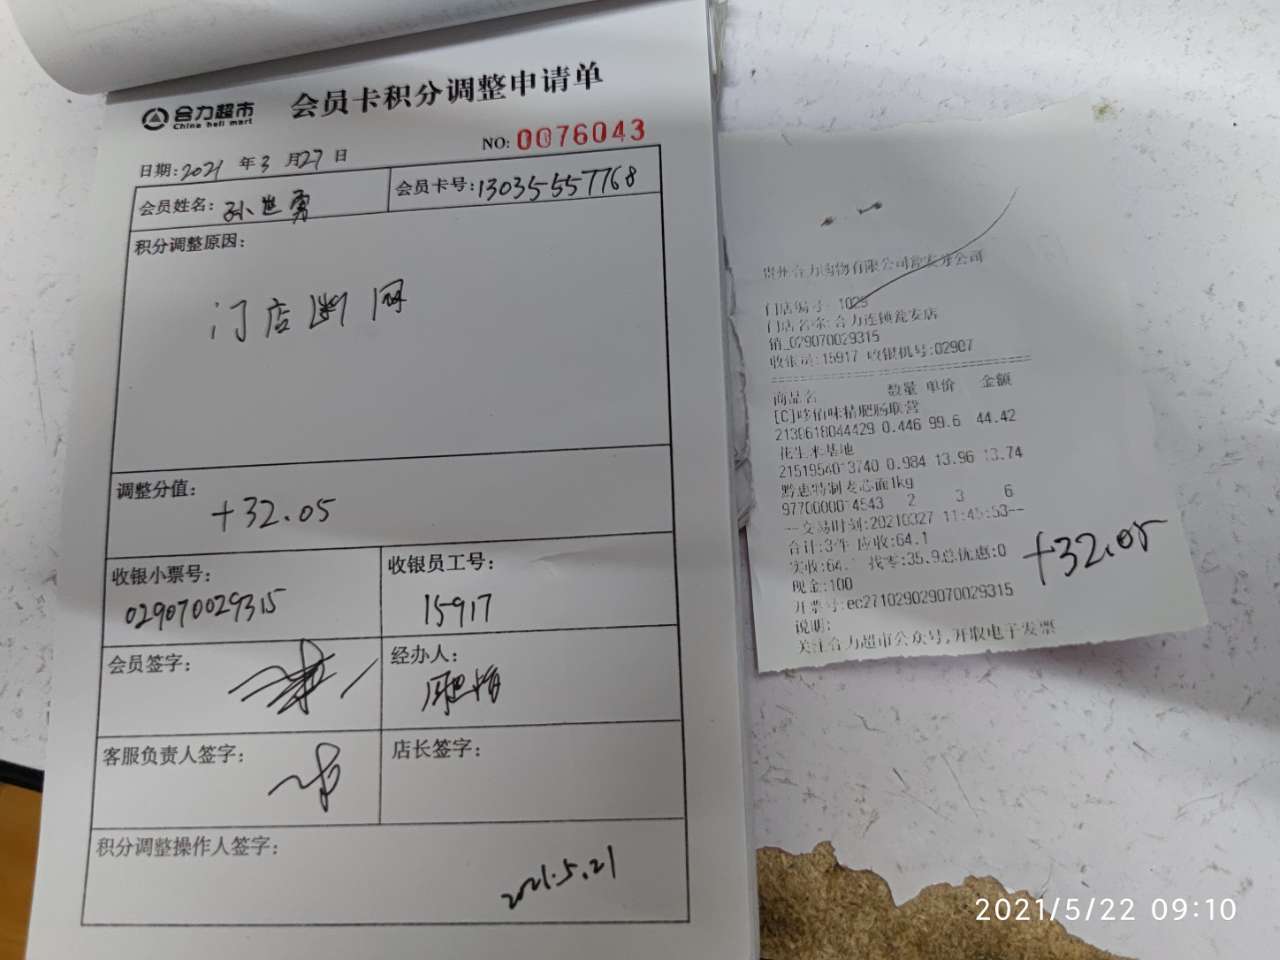 合力超市
China heli mart
会员卡积分调整申请单
NO: 0076043
日期: 2021 年 3 月 27 日
会员姓名: 孙世勇
会员卡号: 13035557768
积分调整原因:
门店断网
调整分值:
+32.05
收银小票号:
029070029315
收银员工号:
15917
会员签字:
经办人:
客服负责人签字:
店长签字:
积分调整操作人签字:
2021.5.21
贵州合力购物有限公司瓮安分公司
门店编号: 1029
门店名称: 合力连锁瓮安店
销_029070029315
收银员:15917 收银机号:02907
商品名 数量 单价 金额
[C]哆佰味精肥肠联营
2130618044429 0.446 99.6 44.42
花生米基地
0.984 13.96 13.74
黔惠特制麦芯面1kg
2 3 6
--交易时刻:20210327 11:45:53--
合计:3件 应收:64.1
实收:64.1 找零:35.9总优惠:0
现金:100
开票号:ec271029029070029315
说明:
关注合力超市公众号,开取电子发票
+32.05
2021/5/22 09:10